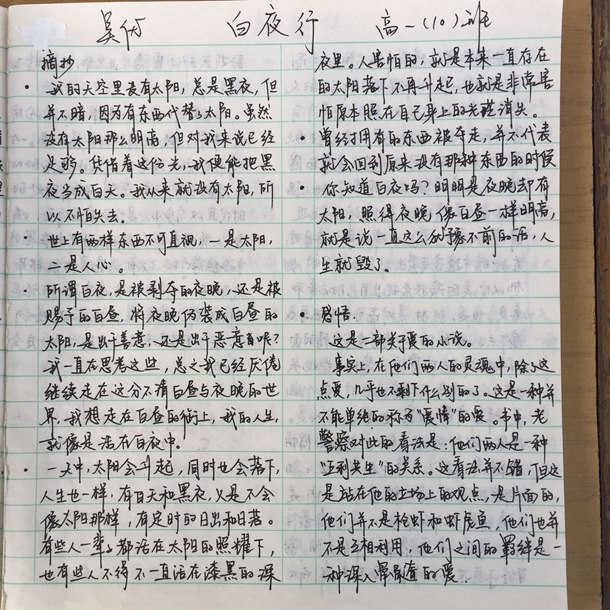 吴仍 白夜行 高一(10)班
摘抄
· 我的天空里没有太阳，总是黑夜，但
并不暗，因为有东西代替了太阳。虽然
没有太阳那么明亮，但对我来说已经
足够。凭借着这份光，我便能把黑
夜当成白天。我从来就没有太阳，所
以不怕失去。
· 世上有两样东西不可直视，一是太阳，
二是人心。
· 所谓白夜，是被剥夺的夜晚，还是被
赐予的白昼，将夜晚伪装成白昼的
太阳，是出于善意，还是出于恶意自呢？
我一直在思考这些，总之我已经厌倦
继续走在这分不有白昼与夜晚的世
界，我想走在白昼的街上，我的人生
就像是活在白夜中。
· 一天中，太阳会升起，同时也会落下，
人生也一样，有白天和黑夜，只是不会
像太阳那样，有定时的日出和日落。
有些人一辈子都活在太阳的照耀下，
也有些人不得不一直活在漆黑的深
夜里。人害怕的，就是本来一直存在
的太阳落下不再升起，也就是非常害
怕原本照在自己身上的光芒消失。
· 曾经拥有的东西被夺走，并不代表
就会回到原来没有那种东西的时候
· 你知道白夜吗？明明是夜晚却有
太阳，照得夜晚像白昼一样明亮，
就是说一直这么犹豫不前的话，人
生就毁了。
· 感悟
这是一部关于爱的小说。
事实上，在他们两人的灵魂中，除了这
点爱，几乎也不剩下什么别的了。这是一种并
不能单纯的称为“爱情”的爱。书中，老
警察对此的看法是：他们两人是一种
“互利共生”的关系。这看法并不错，但这
是站在他的立场上的观点，是片面的，
他们并不是枪虾和虾虎鱼，他们也并
不是互相利用，他们之间的羁绊是一
种深入骨髓的爱。